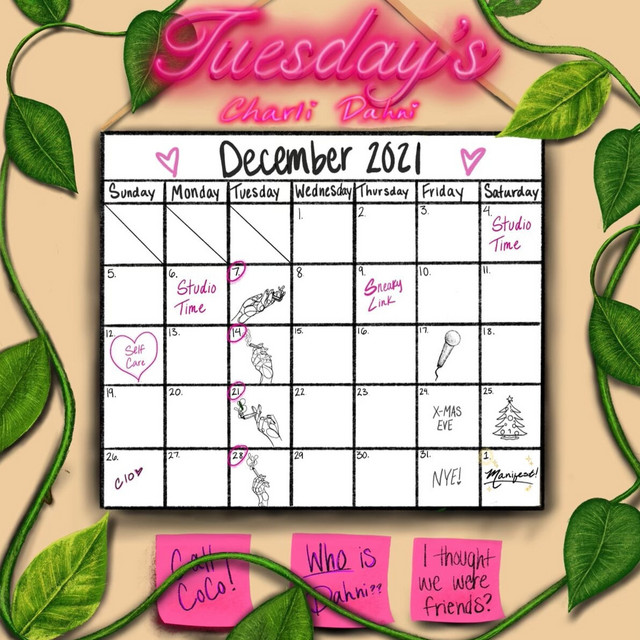 Tuesday's
Charli Dahni
December 2021
Sunday Monday Tuesday Wednesday Thursday Friday Saturday
1. 2. 3. 4.
Studio
Time
5. 6. 7 8 9. 10. 11.
Studio
Time
Sneaky
Link
12 13. 14. 15. 16. 17. 18.
Self
Care
19. 20. 21 22 23. 24. 25.
X-MAS
EVE
26. 27. 28 29 30. 31. 1.
C10
NYE!
Manifest!
Call
CoCo!
Who is
Dahni??
I thought
we were
friends?